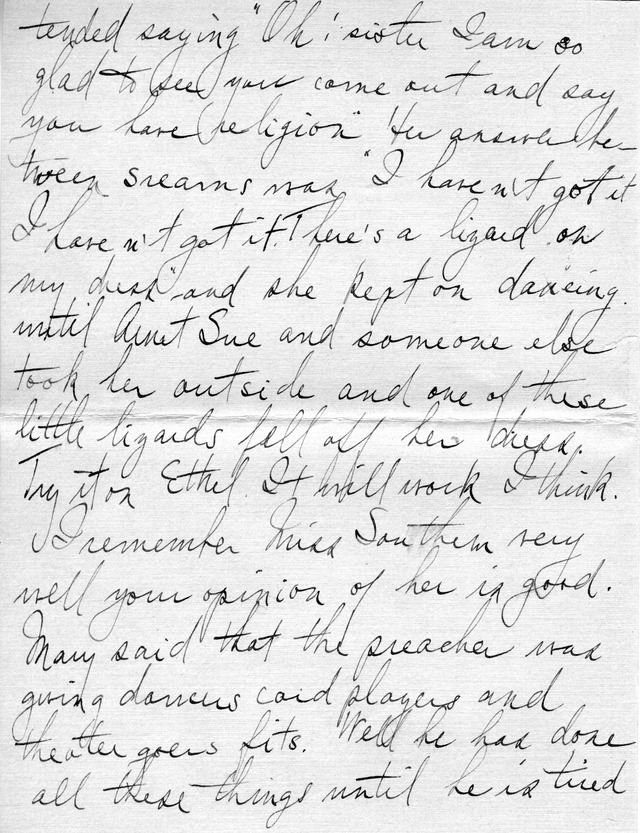 tended saying "Oh! sister I am so
glad to see you come out and say
you have religion" Her answer be-
tween sreams was "I haven't got it
I haven't got it. There's a lizard on
my dress" and she kept on dancing
until Aunt Sue and someone else
took her outside and one of these
little lizards fell off her dress.
Try it on Ethel. It will work I think.
I remember Miss Southern very
well your opinion of her is good.
Mary said that the preacher was
giving dancers card players and
theater goers fits. Well he has done
all these things until he is tired